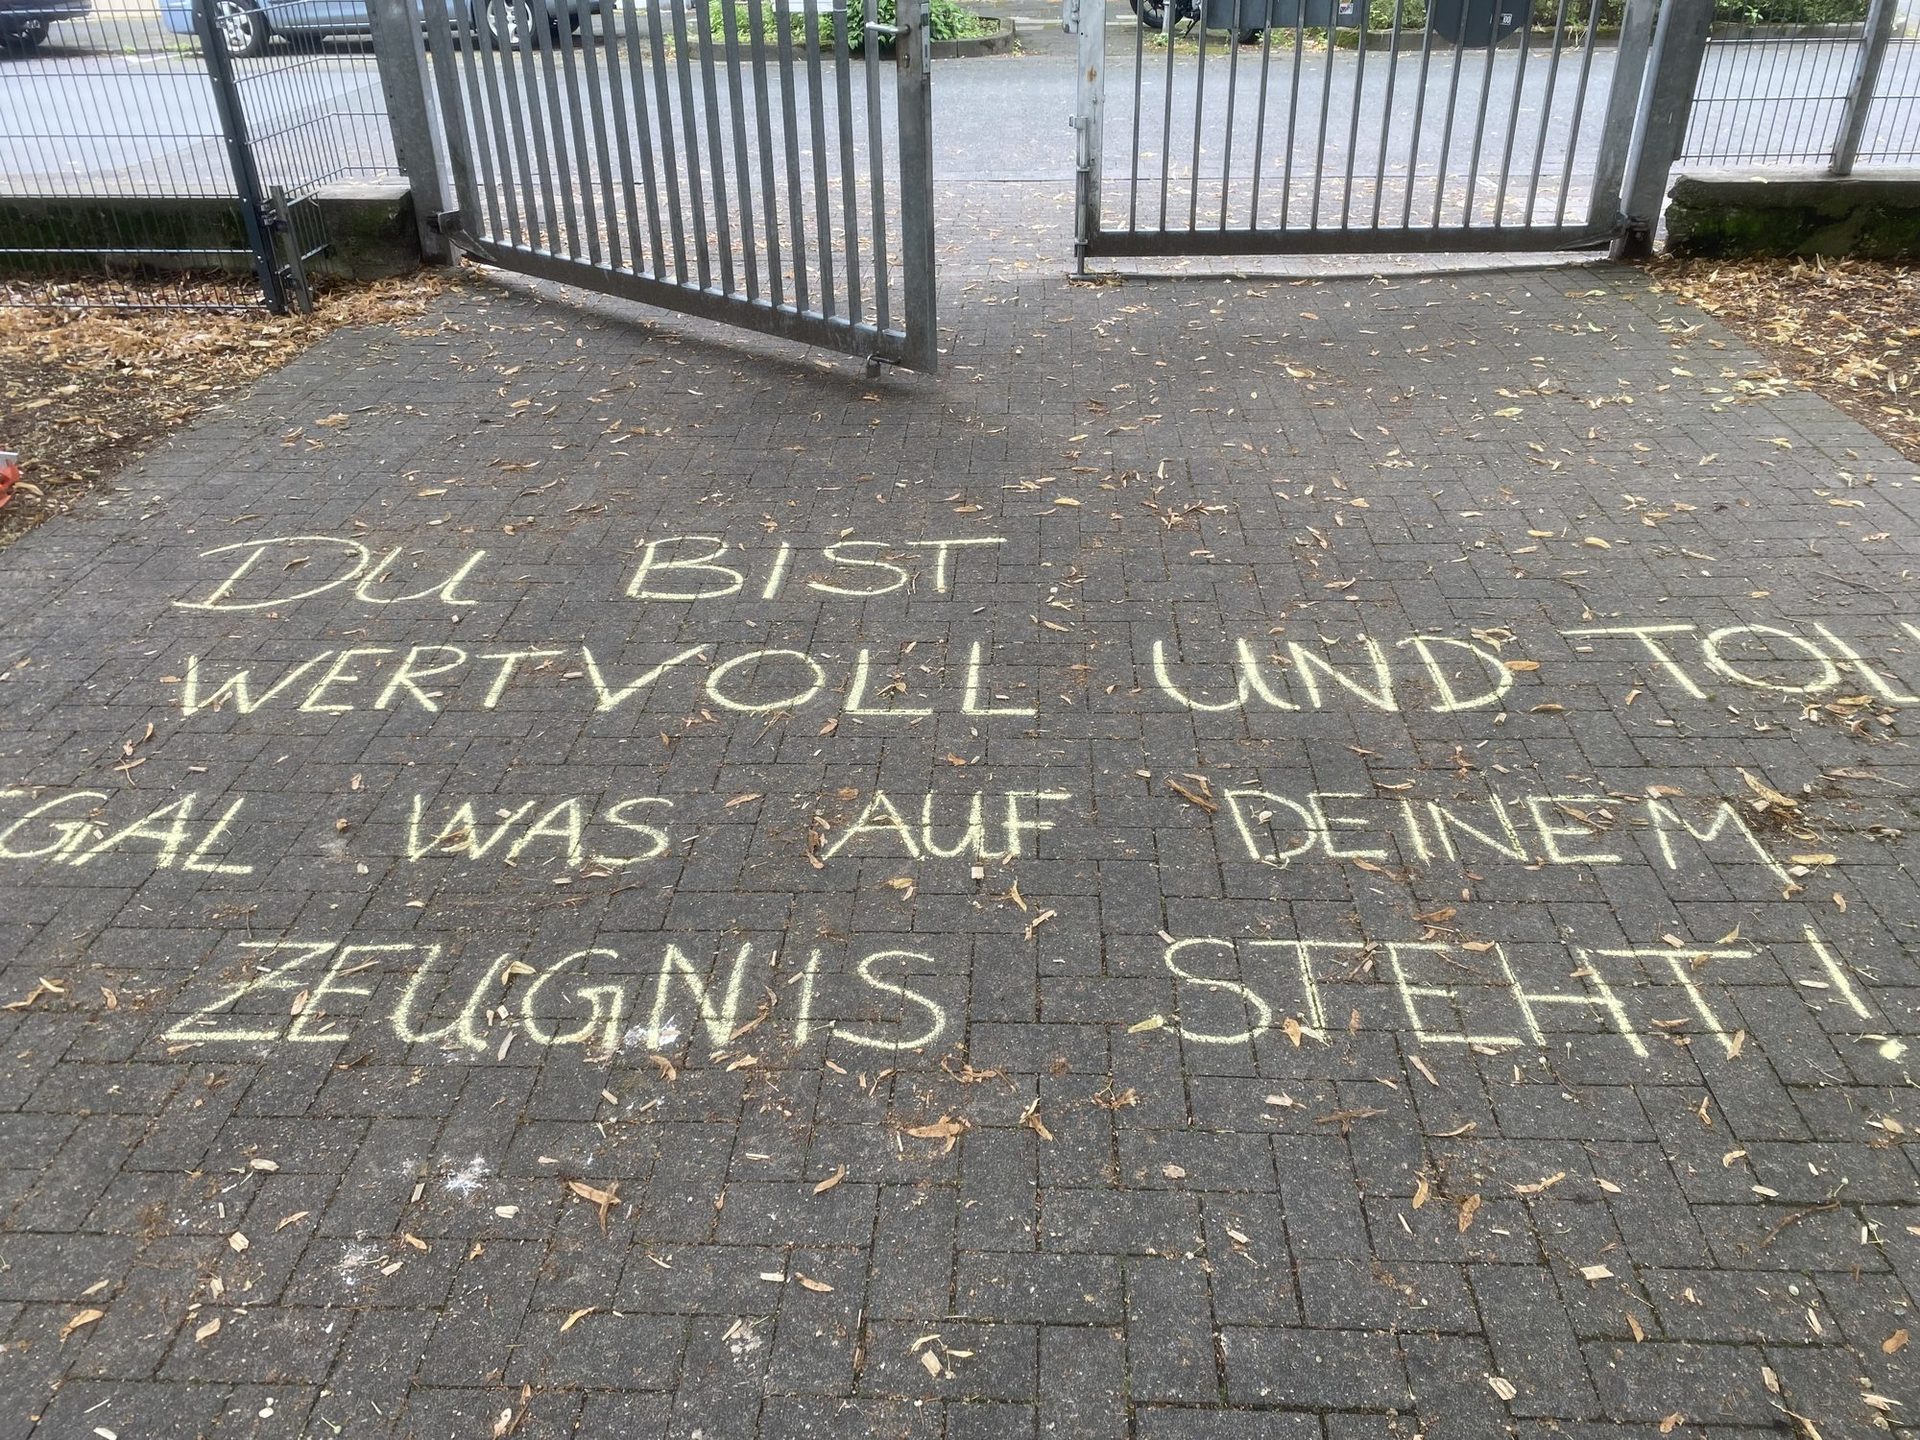 DU BIST
WERTVOLL UND TOLL
EGAL WAS AUF DEINEM
ZEUGNIS STEHT!